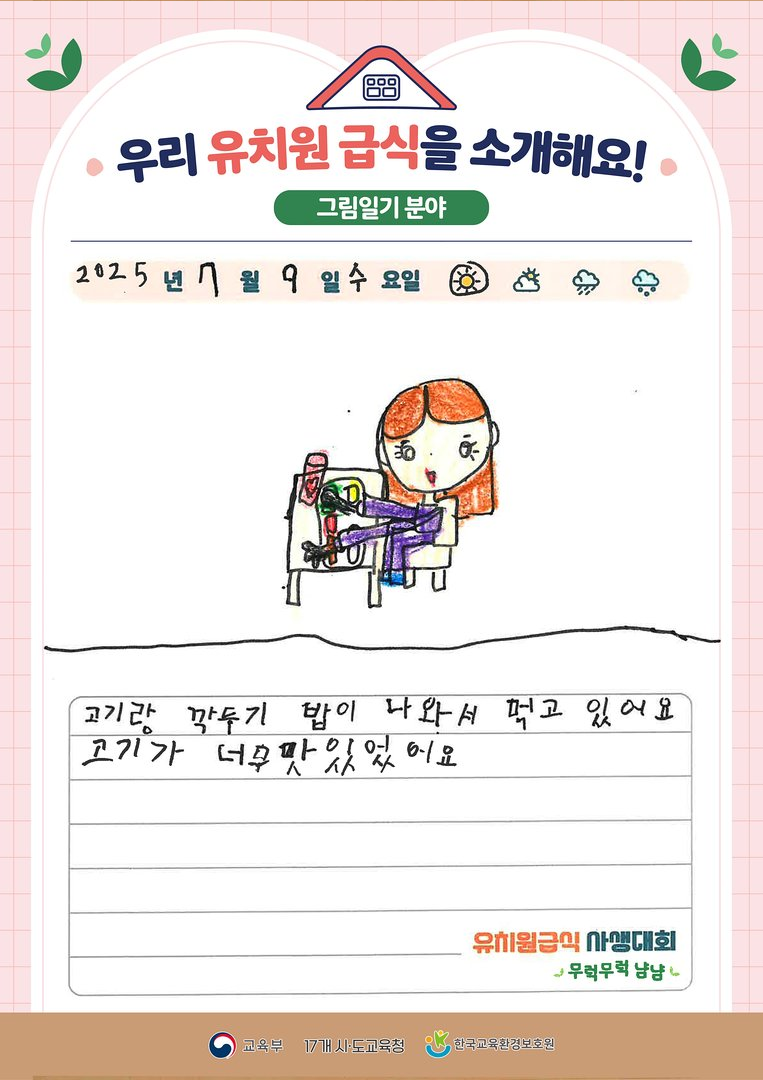 우리 유치원 급식을 소개해요!
그림일기 분야
2025 년 7 월 9 일 수 요일
고기랑 깍두기 밥이 나와서 먹고 있어요
고기가 너무 맛있었어요
유치원급식 사생대회
무럭무럭 냠냠
교육부 17개 시·도교육청 한국교육환경보호원